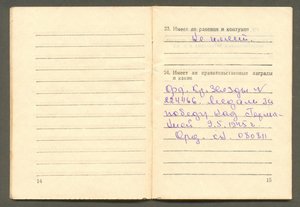 23. Имеет ли ранения и контузии
Не имеет.
24. Имеет ли правительственные награды
и какие
Орд. Кр. Звезды №
224466. Медаль За
победу над Герма-
нией 9.5.1945 г.
Орд.
14
15